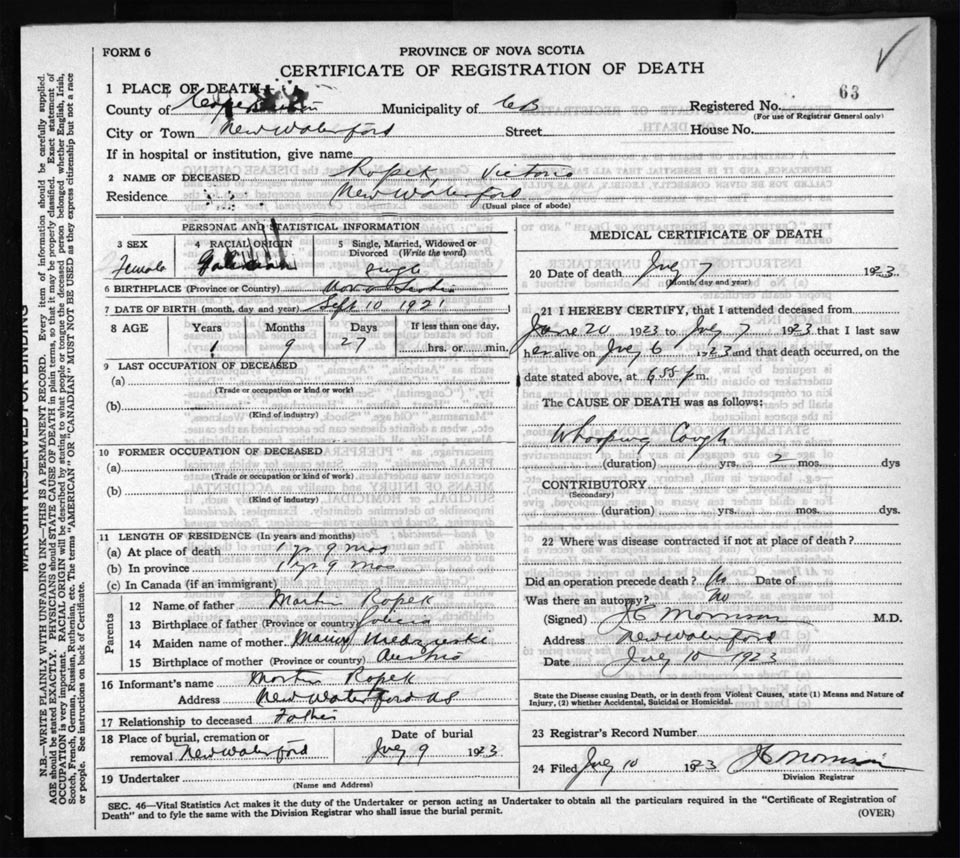 FORM 6
PROVINCE OF NOVA SCOTIA
CERTIFICATE OF REGISTRATION OF DEATH
63
1 PLACE OF DEATH
County of Municipality of CB Registered No.
(For use of Registrar General only)
City or Town New Waterford Street House No.
If in hospital or institution, give name
2 NAME OF DECEASED Ropek, Victoria
Residence New Waterford
(Usual place of abode)
PERSONAL AND STATISTICAL INFORMATION
3 SEX 4 RACIAL ORIGIN 5 Single, Married, Widowed or
Divorced (Write the word)
Female Galician Single
6 BIRTHPLACE (Province or Country) Nova Scotia
7 DATE OF BIRTH (month, day and year) Sept 10 1921
8 AGE Years Months Days If less than one day,
1 9 27 hrs. or min.
9 LAST OCCUPATION OF DECEASED
(a)
(Trade or occupation or kind or work)
(b)
(Kind of industry)
10 FORMER OCCUPATION OF DECEASED
(a)
(Trade or occupation or kind of work)
(b)
(Kind of industry)
11 LENGTH OF RESIDENCE (In years and months)
(a) At place of death 1 yr 9 mos
(b) In province 1 yr 9 mos
(c) In Canada (if an immigrant)
Parents
12 Name of father Martin Ropek
13 Birthplace of father (Province or country)
14 Maiden name of mother
15 Birthplace of mother (Province or country) Austria
16 Informant's name Martin Ropek
Address New Waterford NS
17 Relationship to deceased Father
18 Place of burial, cremation or Date of burial
removal New Waterford July 9 1923
19 Undertaker
(Name and Address)
MEDICAL CERTIFICATE OF DEATH
20 Date of death July 7 1923.
(Month, day and year)
21 I HEREBY CERTIFY, that I attended deceased from
June 20 1923 to July 7 1923 that I last saw
her alive on July 6 1923 and that death occurred, on the
date stated above, at 6.55 p m.
The CAUSE OF DEATH was as follows:
Whooping Cough
(duration) yrs. 2 mos. dys
CONTRIBUTORY
(Secondary)
(duration) yrs. mos. dys.
22 Where was disease contracted if not at place of death?
Did an operation precede death? No Date of
Was there an autopsy? No
(Signed) JC Morrison M.D.
Address New Waterford
Date July 10 1923
State the Disease causing Death, or in death from Violent Causes, state (1) Means and Nature of
Injury, (2) whether Accidental, Suicidal or Homicidal.
23 Registrar's Record Number
24 Filed July 10 1923 JC Morrison
Division Registrar
SEC. 46—Vital Statistics Act makes it the duty of the Undertaker or person acting as Undertaker to obtain all the particulars required in the "Certificate of Registration of
Death" and to fyle the same with the Division Registrar who shall issue the burial permit.
(OVER)
MARGIN RESERVED FOR BINDING
N.B.—WRITE PLAINLY WITH UNFADING INK—THIS IS A PERMANENT RECORD. Every item of information should be carefully supplied.
AGE should be stated EXACTLY. PHYSICIANS should STATE CAUSE OF DEATH in plain terms, so that it may be properly classified. Exact statement of
OCCUPATION is very important. RACIAL ORIGIN will be described by stating to what people or tongue the deceased person belonged whether English, Irish,
Scotch, French, German, Russian, Ruthenian, etc. The terms "AMERICAN" OR "CANADIAN" MUST NOT BE USED as they express citizenship but not a race
or people. See instructions on back of Certificate.